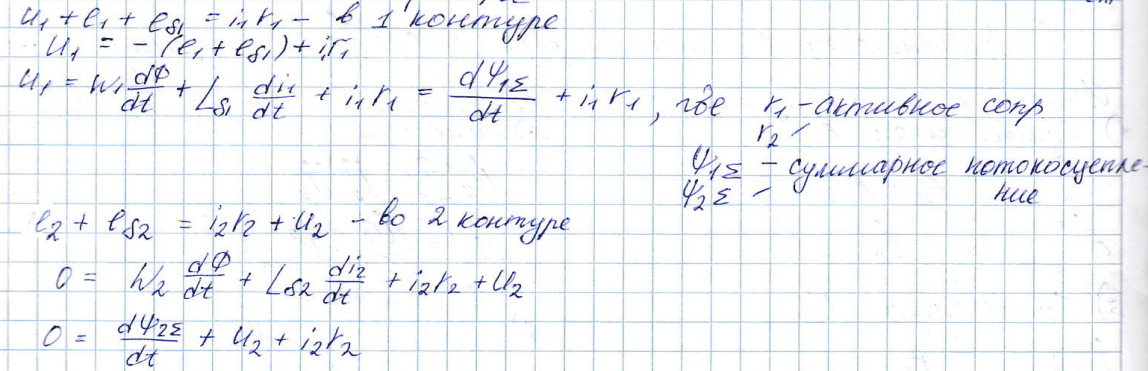 u₁ + e₁ + e_{S1} = i₁r₁ – в 1 контуре
u₁ = – (e₁ + e_{S1}) + i₁r₁
u₁ = W₁ dФ/dt + L_{S1} di₁/dt + i₁r₁ = dΨ_{1Σ}/dt + i₁r₁, где r₁ – активное сопр
r₂ –
Ψ_{1Σ} – суммарное потокосцепле-
Ψ_{2Σ} – ние
e₂ + e_{S2} = i₂r₂ + u₂ – во 2 контуре
0 = W₂ dФ/dt + L_{S2} di₂/dt + i₂r₂ + u₂
0 = dΨ_{2Σ}/dt + u₂ + i₂r₂